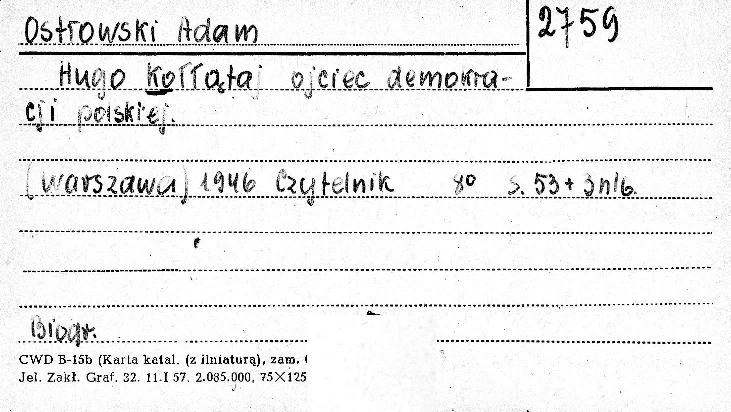 Ostrowski Adam
2759
Hugo Kołłątaj ojciec demokra-
cji polskiej.
(Warszawa) 1946 Czytelnik 8º s. 53 + 3 nlb.
Biogr.
CWD B-15b (Karta katal. (z ilniaturą), zam.
Jel. Zakł. Graf. 32. 11-I 57. 2.085.000, 75×125